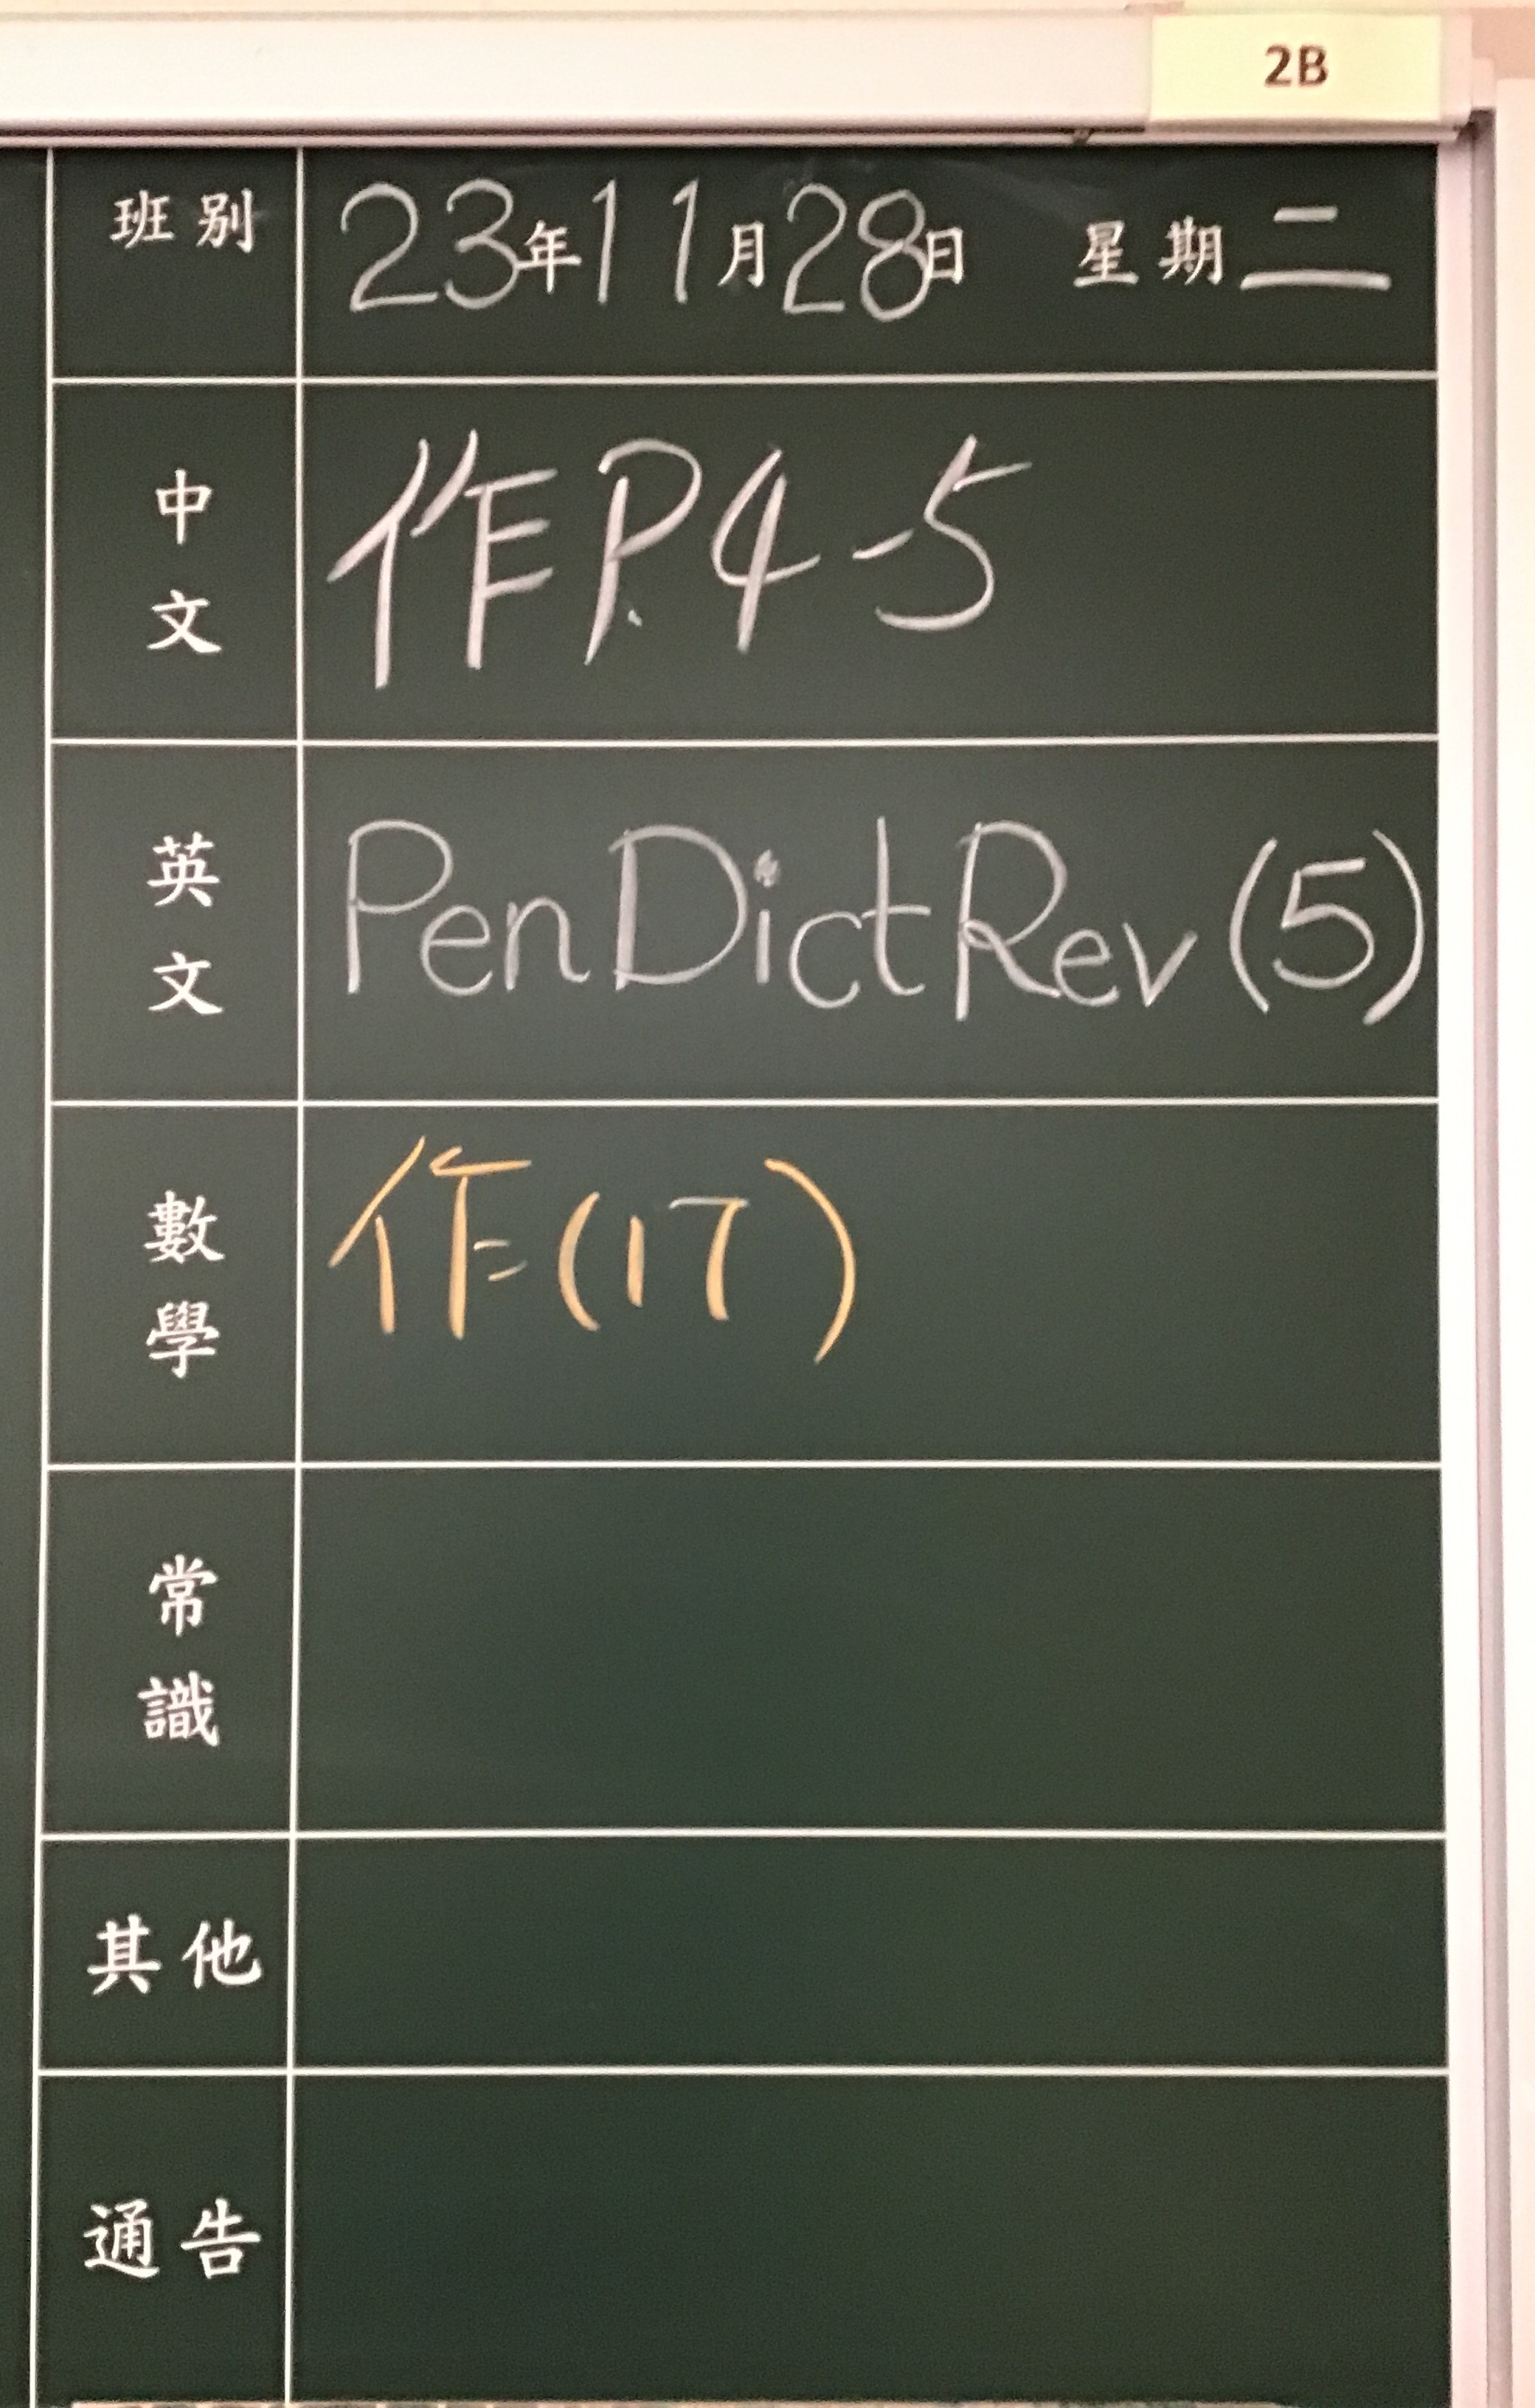 2B
班別 23年11月28日 星期二
中文 作P.4-5
英文 Pen Dict Rev (5)
數學 作(17)
常識
其他
通告